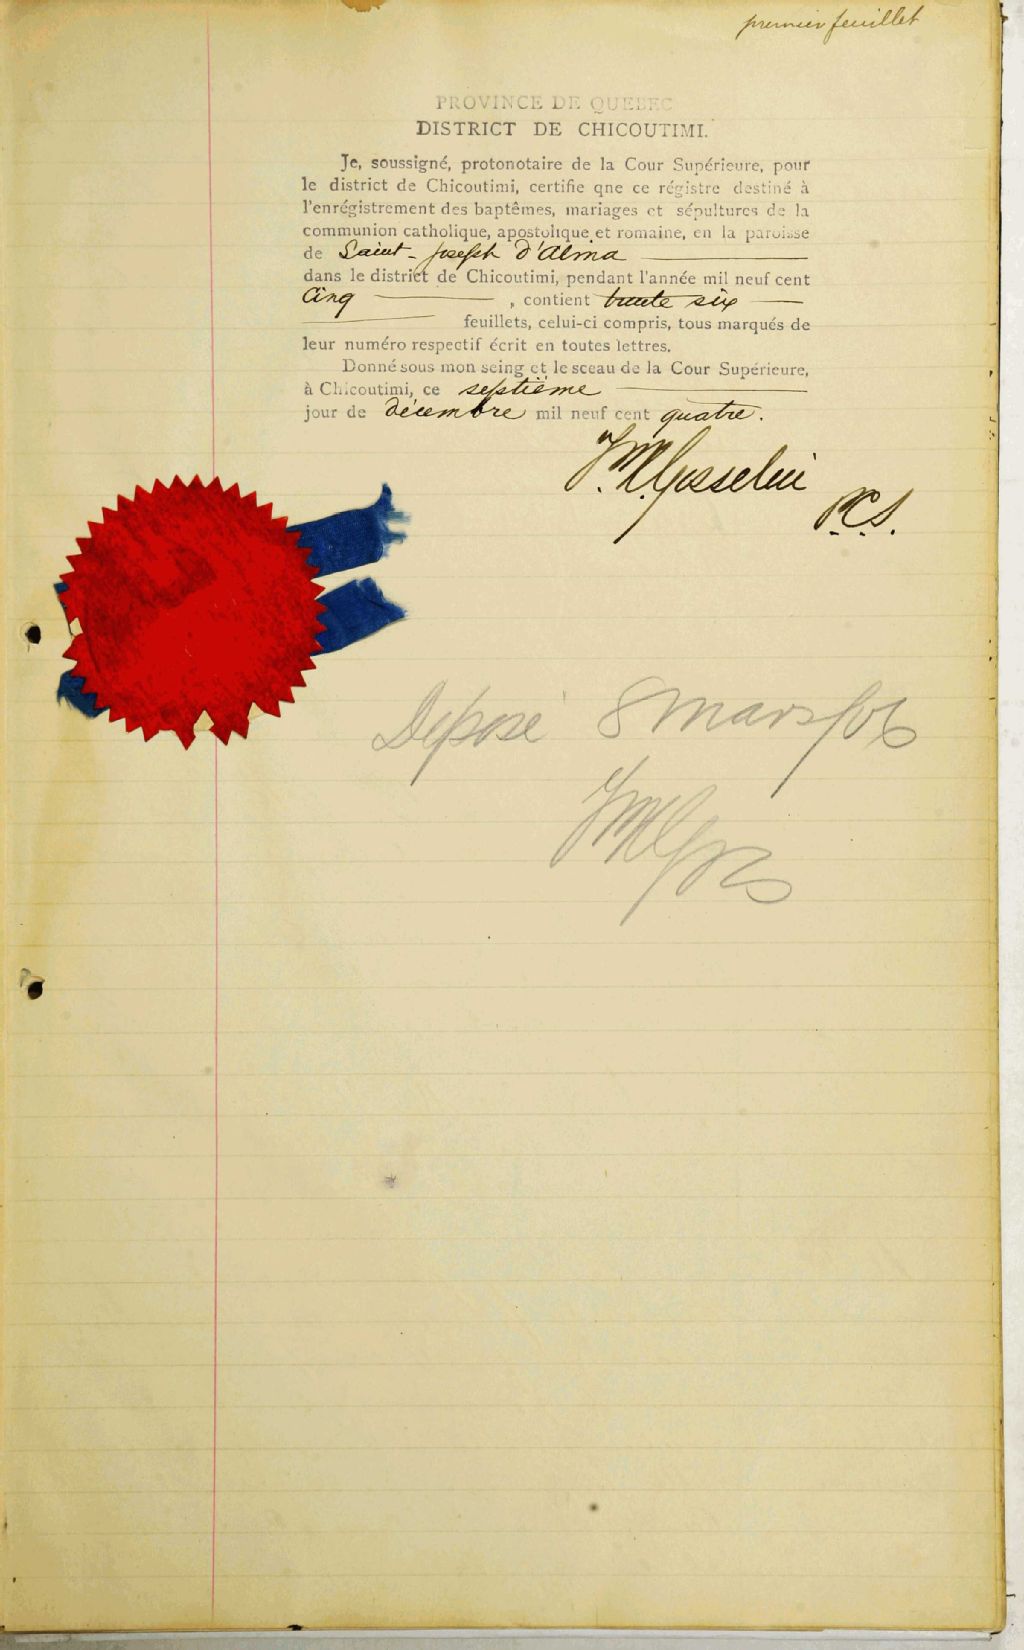 premier feuillet
PROVINCE DE QUEBEC
DISTRICT DE CHICOUTIMI.
Je, soussigné, protonotaire de la Cour Supérieure, pour
le district de Chicoutimi, certifie qne ce régistre destiné à
l'enrégistrement des baptêmes, mariages et sépultures de la
communion catholique, apostolique et romaine, en la paroisse
de Saint-Joseph d'Alma
dans le district de Chicoutimi, pendant l'année mil neuf cent
cinq , contient trente six
feuillets, celui-ci compris, tous marqués de
leur numéro respectif écrit en toutes lettres.
Donné sous mon seing et le sceau de la Cour Supérieure,
à Chicoutimi, ce septième
jour de décembre mil neuf cent quatre.
Gosselin
P.C.S.
Déposé 8 mars /06